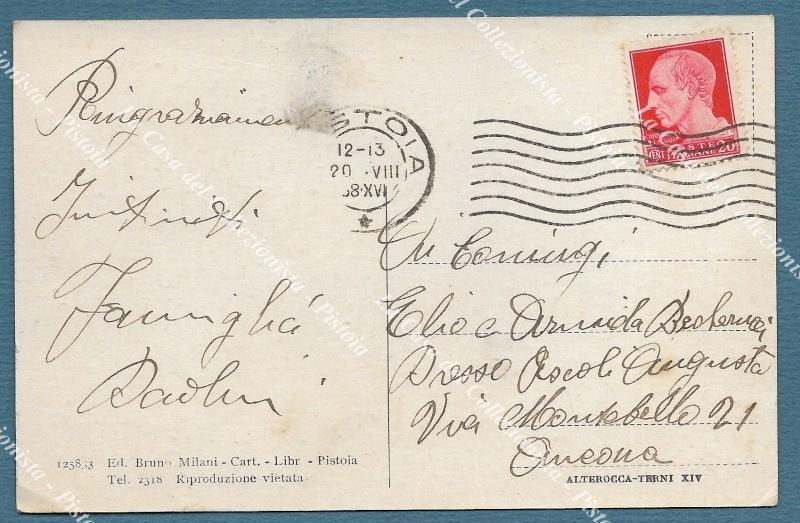 Ringraziamenti
Famiglia
Paolini
PISTOIA
12-13
20 VIII
38·XVI
POSTE
ITALIANE
CENT 20
Ai Coniugi
Elio e Armida
Presso Ascoli Augusta
Via Montebello 21
Ancona
125833 Ed. Bruno Milani - Cart. - Libr - Pistoia
Tel. 2318 Riproduzione vietata
ALTEROCCA-TERNI XIV
Casa del Collezionista - Pistoia